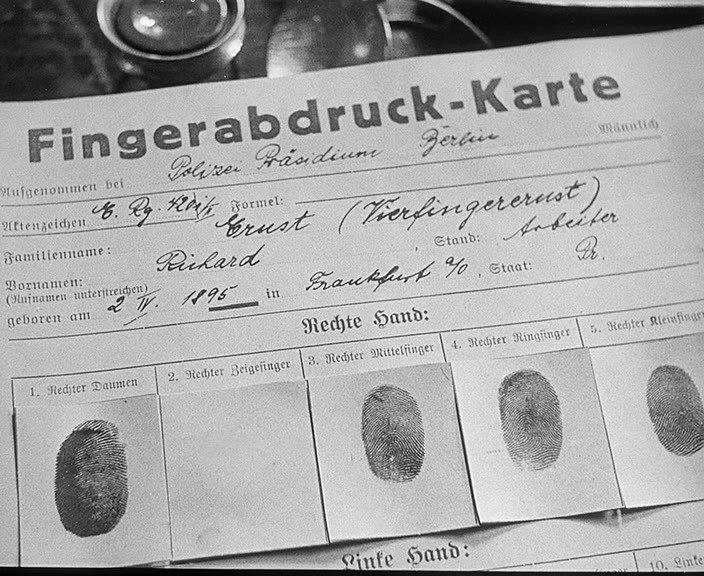 Fingerabdruck-Karte
Männlich
Aufgenommen bei Polizei Präsidium Berlin
Aktenzeichen Formel:
Familienname: Ernst (Vierfingerernst)
Vornamen: Richard Stand: Arbeiter
(Rufnamen unterstreichen)
geboren am 2 IV. 1895 in Frankfurt a/O, Staat: Pr.
Rechte Hand:
1. Rechter Daumen 2. Rechter Zeigefinger 3. Rechter Mittelfinger 4. Rechter Ringfinger 5. Rechter Kleinfinger
Linke Hand:
10. Linke